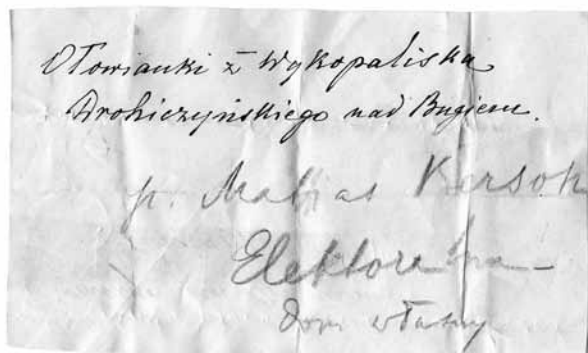 Ołowianki z Wykopaliska
Drohiczyńskiego nad Bugiem.
p. Matjas Bersohn
Elektoralna
dom własny